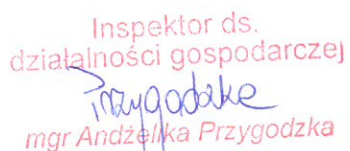 Inspektor ds.
działalności gospodarczej
Przygodzka
mgr Andżelika Przygodzka